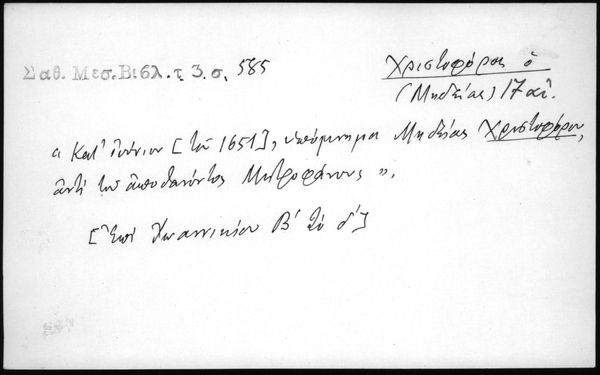 Σαθ. Μεσ. Βιβλ. τ. 3. σ. 585
Χριστοφόρος ὁ
(Μηδείας) 17 αἰ.
« Κατ' ἰούνιον [τοῦ 1651], ὑπόμνημα Μηδείας Χριστοφόρου,
ἀντὶ τοῦ ἀποθανόντος Μητροφάνους ».
[Ἐπὶ Ἰωαννικίου Β' τὸ δ']